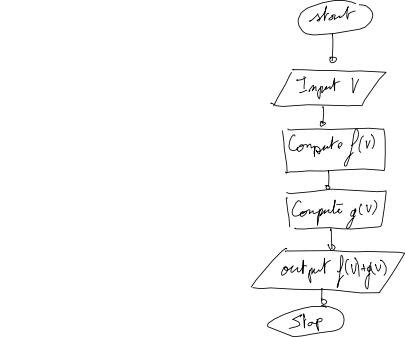 start
Input V
Compute f(V)
Compute g(V)
output f(V)+g(V)
Stop